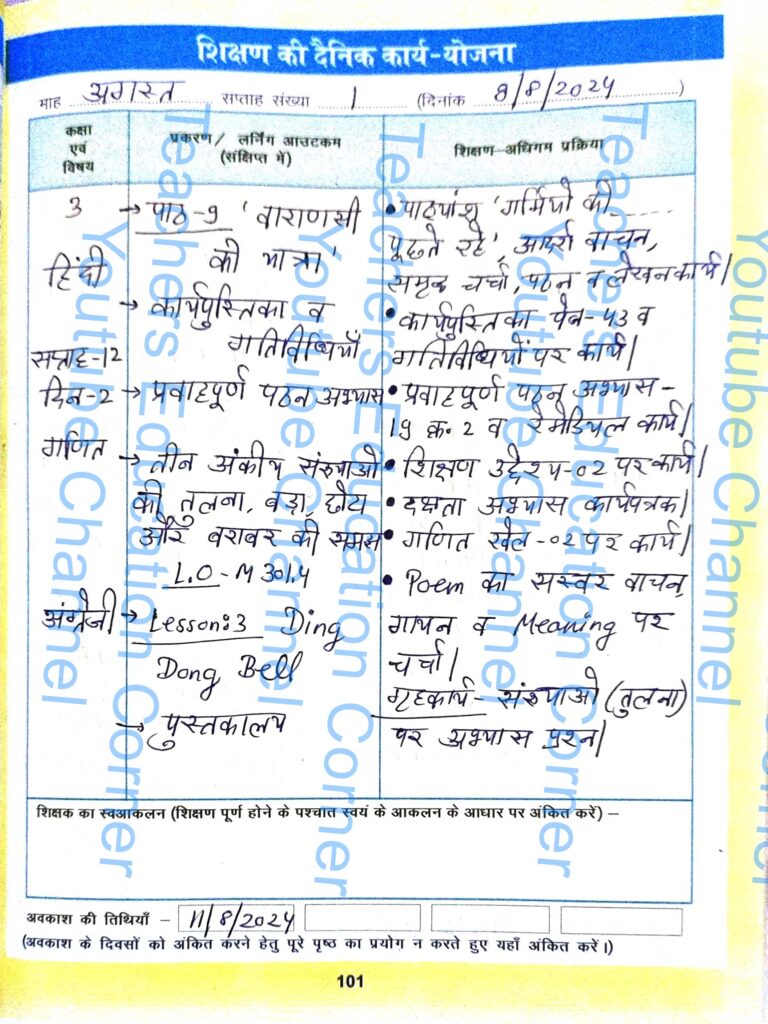 शिक्षण की दैनिक कार्य-योजना
माह अगस्त सप्ताह संख्या 1 (दिनांक 8/8/2024)
कक्षा एवं विषय
प्रकरण / लर्निंग आउटकम (संक्षिप्त में)
शिक्षण-अधिगम प्रक्रिया
3
हिंदी
→ पाठ-9 'वाराणसी
की यात्रा'
→ कार्यपुस्तिका व
गतिविधियाँ
सप्ताह-12
दिन-2 → प्रवाहपूर्ण पठन अभ्यास
गणित
→ तीन अंकीय संख्याओं
की तुलना, बड़ा, छोटा
और बराबर की समझ
L.O-M301.4
अंग्रेजी → Lesson:3 Ding
Dong Bell
→ पुस्तकालय
• पाठ्यांश 'गर्मियों की ....
पूछते रहे', आदर्श वाचन,
समूह चर्चा, पठन व लेखन कार्य।
• कार्यपुस्तिका पेज-43 व
गतिविधियों पर कार्य।
• प्रवाहपूर्ण पठन अभ्यास-
19 क्र. 2 व रेमेडियल कार्य।
• शिक्षण उद्देश्य-02 पर कार्य।
• दक्षता अभ्यास कार्यपत्रक।
• गणित खेल-02 पर कार्य।
• Poem का सस्वर वाचन,
गायन व Meaning पर
चर्चा।
गृहकार्य- संख्याओं (तुलना)
पर अभ्यास प्रश्न।
शिक्षक का स्वआकलन (शिक्षण पूर्ण होने के पश्चात स्वयं के आकलन के आधार पर अंकित करें) –
अवकाश की तिथियाँ – 11/8/2024
(अवकाश के दिवसों को अंकित करने हेतु पूरे पृष्ठ का प्रयोग न करते हुए यहाँ अंकित करें।)
101
Teachers Education Corner
Youtube Channel
Teachers Education Corner
Youtube Channel
Teachers Education Corner
Youtube Channel
Youtube Channel